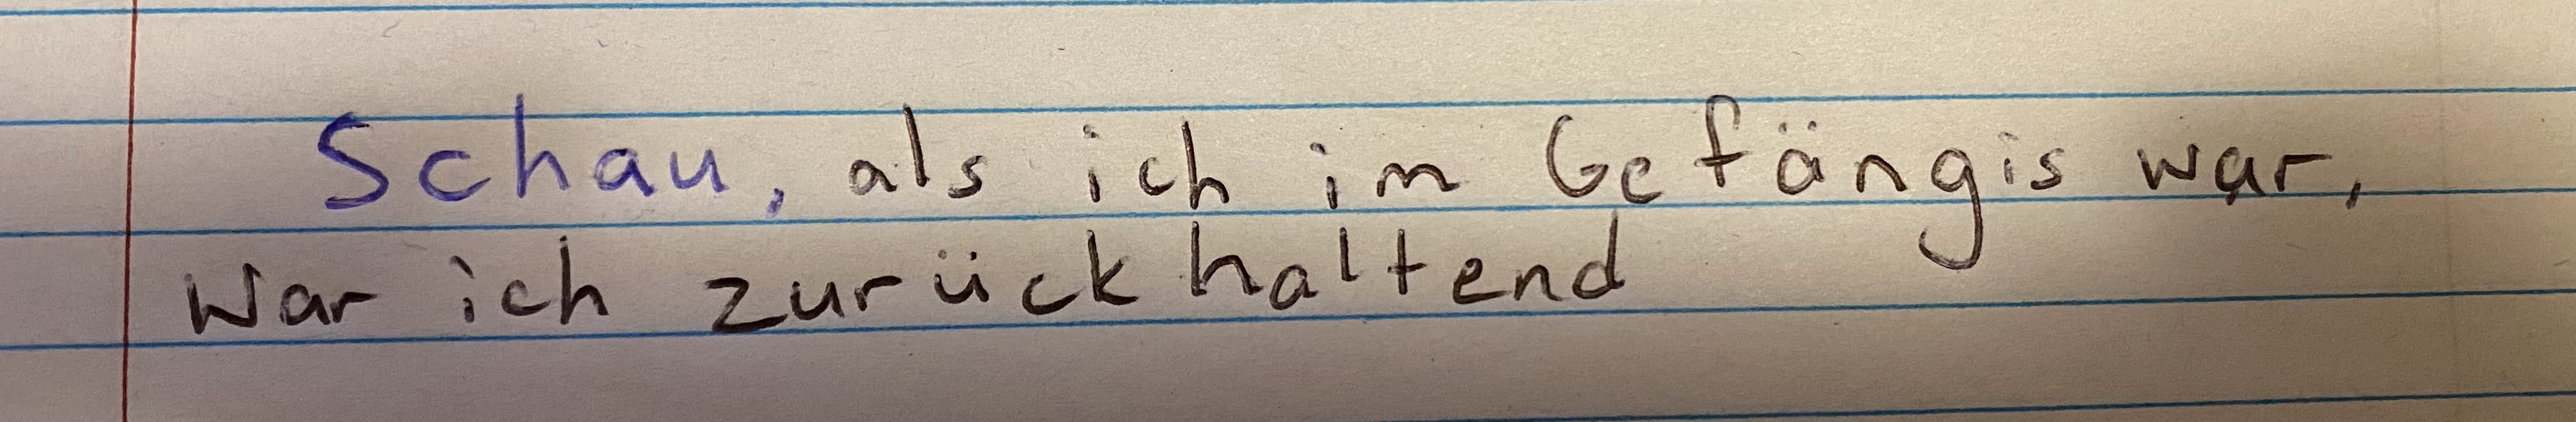 Schau, als ich im Gefängis war,
war ich zurückhaltend